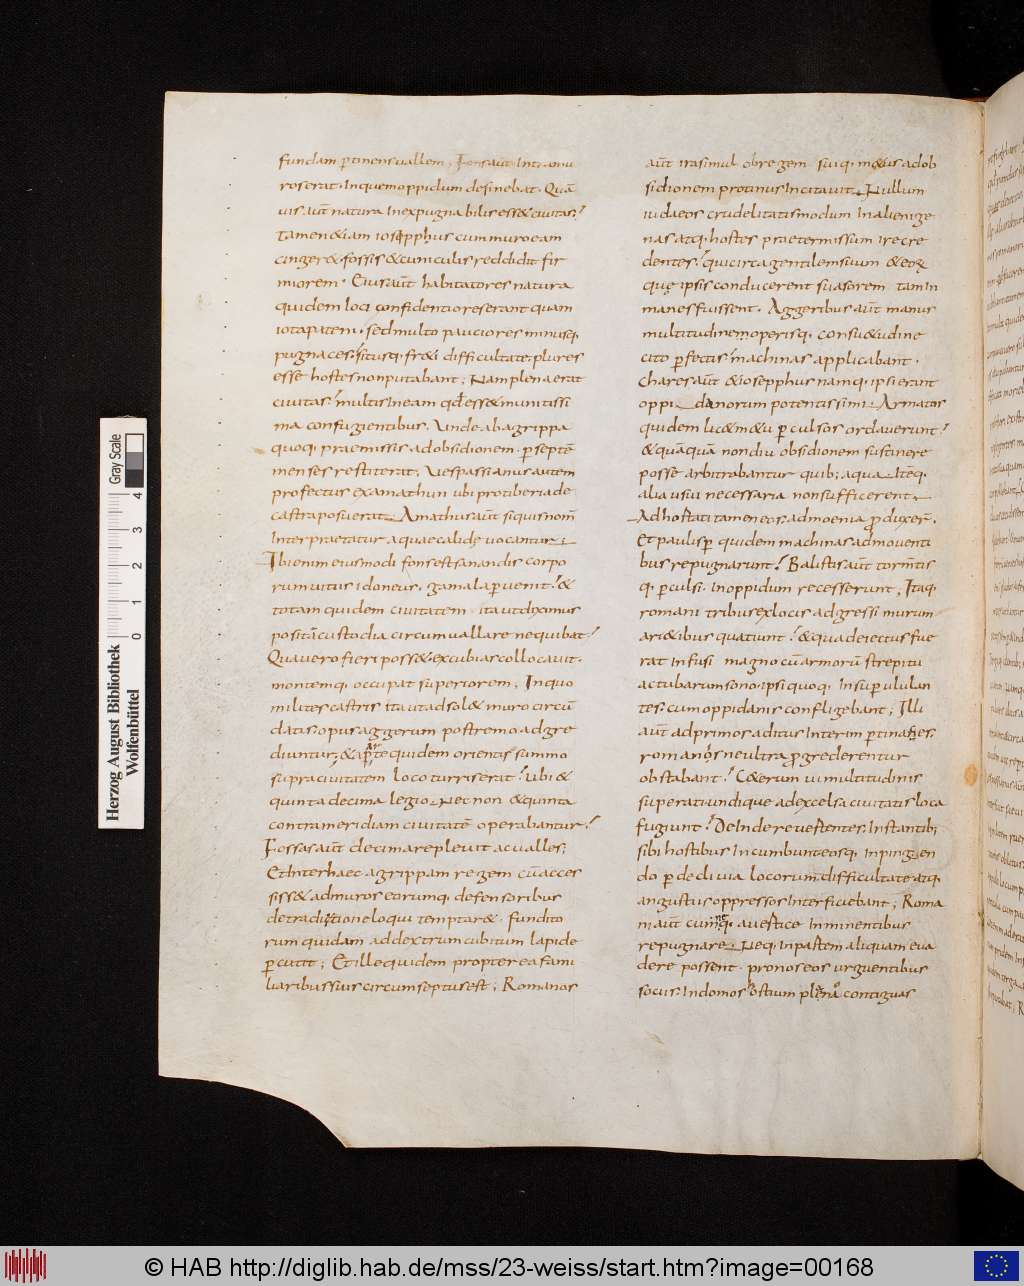 fundam ptinens uallem; Fons aut̄ intra mu
ros erat. Inquem oppidum desinebat. Quā
uis aut̄ natura inexpugnabilis ess& ciuitas;
Tamen &iam iosepphus cum muro eam
cinger& fossis & cuniculis reddidit fir
miorem. Eius aut̄ habitatores natura
quidem loci confidentiores erant quam
iotapateni. sed multo pauciores minusq;
pugnaces. situsq; fr&i difficultate. plures
esse hostes non putabant; Nam plena erat
ciuitas multis in eam qđ ess& munitissi
ma confugientibus. Unde ab agrippa
quoq; praemissis ad obsidionem. p septē
menses restiterat. Uespassianus autem
profectus ex amathun ubi pro tiberiade
castra posuerat. Amathus aut̄ siquis nom̄
Interpraetatur aquae calidę uocantur.
Ibi enim eiusmodi fons est sanandis corpo
rum uitiis idoneus. gamala puenit. &
totam quidem ciuitatem. ita ut diximus
positā custodia circumuallare nequibat
Qua uero fieri poss&. excubias collocauit.
montemq; occupat superiorem; In quo
milites castris ita ut adsol& muro circū
datis. opus aggerum postremo adgre
diuntur; & a parte quidem orientis summo
supra ciuitatem loco turris erat ubi &
quinta decima legio. Nec non & quinta
contra meridiam ciuitatē operabantur
Fossas aut̄ decima repleuit ac ualles;
Et Inter haec agrippam regem cū acces
siss& ad muros eorumq; defensoribus
de traditione loqui temptar&. fundito
rum quidam ad dextrum cubitum lapide
pcutit; Et ille quidem propterea fami
liaribus suis circumseptus est; Romanos
aut̄ ira simul ob regem suiq; m&us ad ob
sidionem protinus Incitauit. Nullum
iudaeos crudelitatis modum In alienige
nas atq; hostes praetermissum ire cre
dentes. qui circa gentilem suum & eorꝝ
quę ipsis conducerent suasorem tam In
manes fuissent. Aggeribus aut̄ manus
multitudinem operisq; consu&udine
cito pfectis machinas applicabant.
Chares aut̄ & iosepphus namq; ipsi erant
oppidanorum potentissimi. Armatos
quidem lic& m&u pculsos ordauerunt
& quāquā non diu obsidionem sustinere
posse arbitrabantur quib; aqua. Itēq;
alia usui necessaria non sufficerent.
Adhortati tamen eos ad moenia pduxer̄.
Et paulisp quidem machinas admouenti
bus repugnarunt. Balistis aut̄ tormtis
q; pculsi. In oppidum recesserunt; Itaq;
romani tribus ex locis adgressi murum
ari&ibus quatiunt & qua deiectus fue
rat infusi magno cū armorū strepitu
ac tubarum sono. ipsi quoq; Insup ululan
tes. cum oppidanis confligebant; Illi
aut̄ ad primos aditus Interim ptinaces.
romanos ne ultra pgrederentur
obstabant. C&erum ui multitudinis
superati. undique ad excelsa ciuitatis loca
fugiunt. DeInde reuertentes. Instantib;
sibi hostibus Incumbunt eosq; Inpingen
do p decliuia locorum difficultate atq;
angustiis oppressos Interficiebant; Roma
ni aut̄ cum neq; a uertice Inminentibus
repugnare. Neq; In partem aliquam eua
dere possent. pronos eos urguentibus
socus. In domos hostium plano contiguas